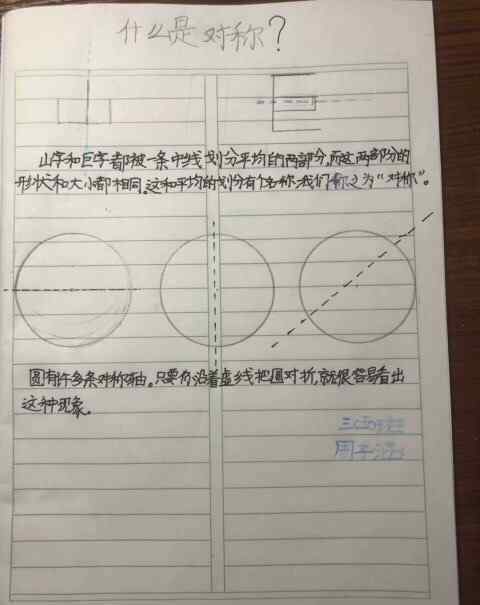 什么是对称？
山字和巨字都被一条中线划分平均的两部分，而这两部分的
形状和大小都相同。这种平均的划分有个名称，我们称之为“对称”。
圆有许多条对称轴。只要你沿着虚线把圆对折，就很容易看出
这种现象。